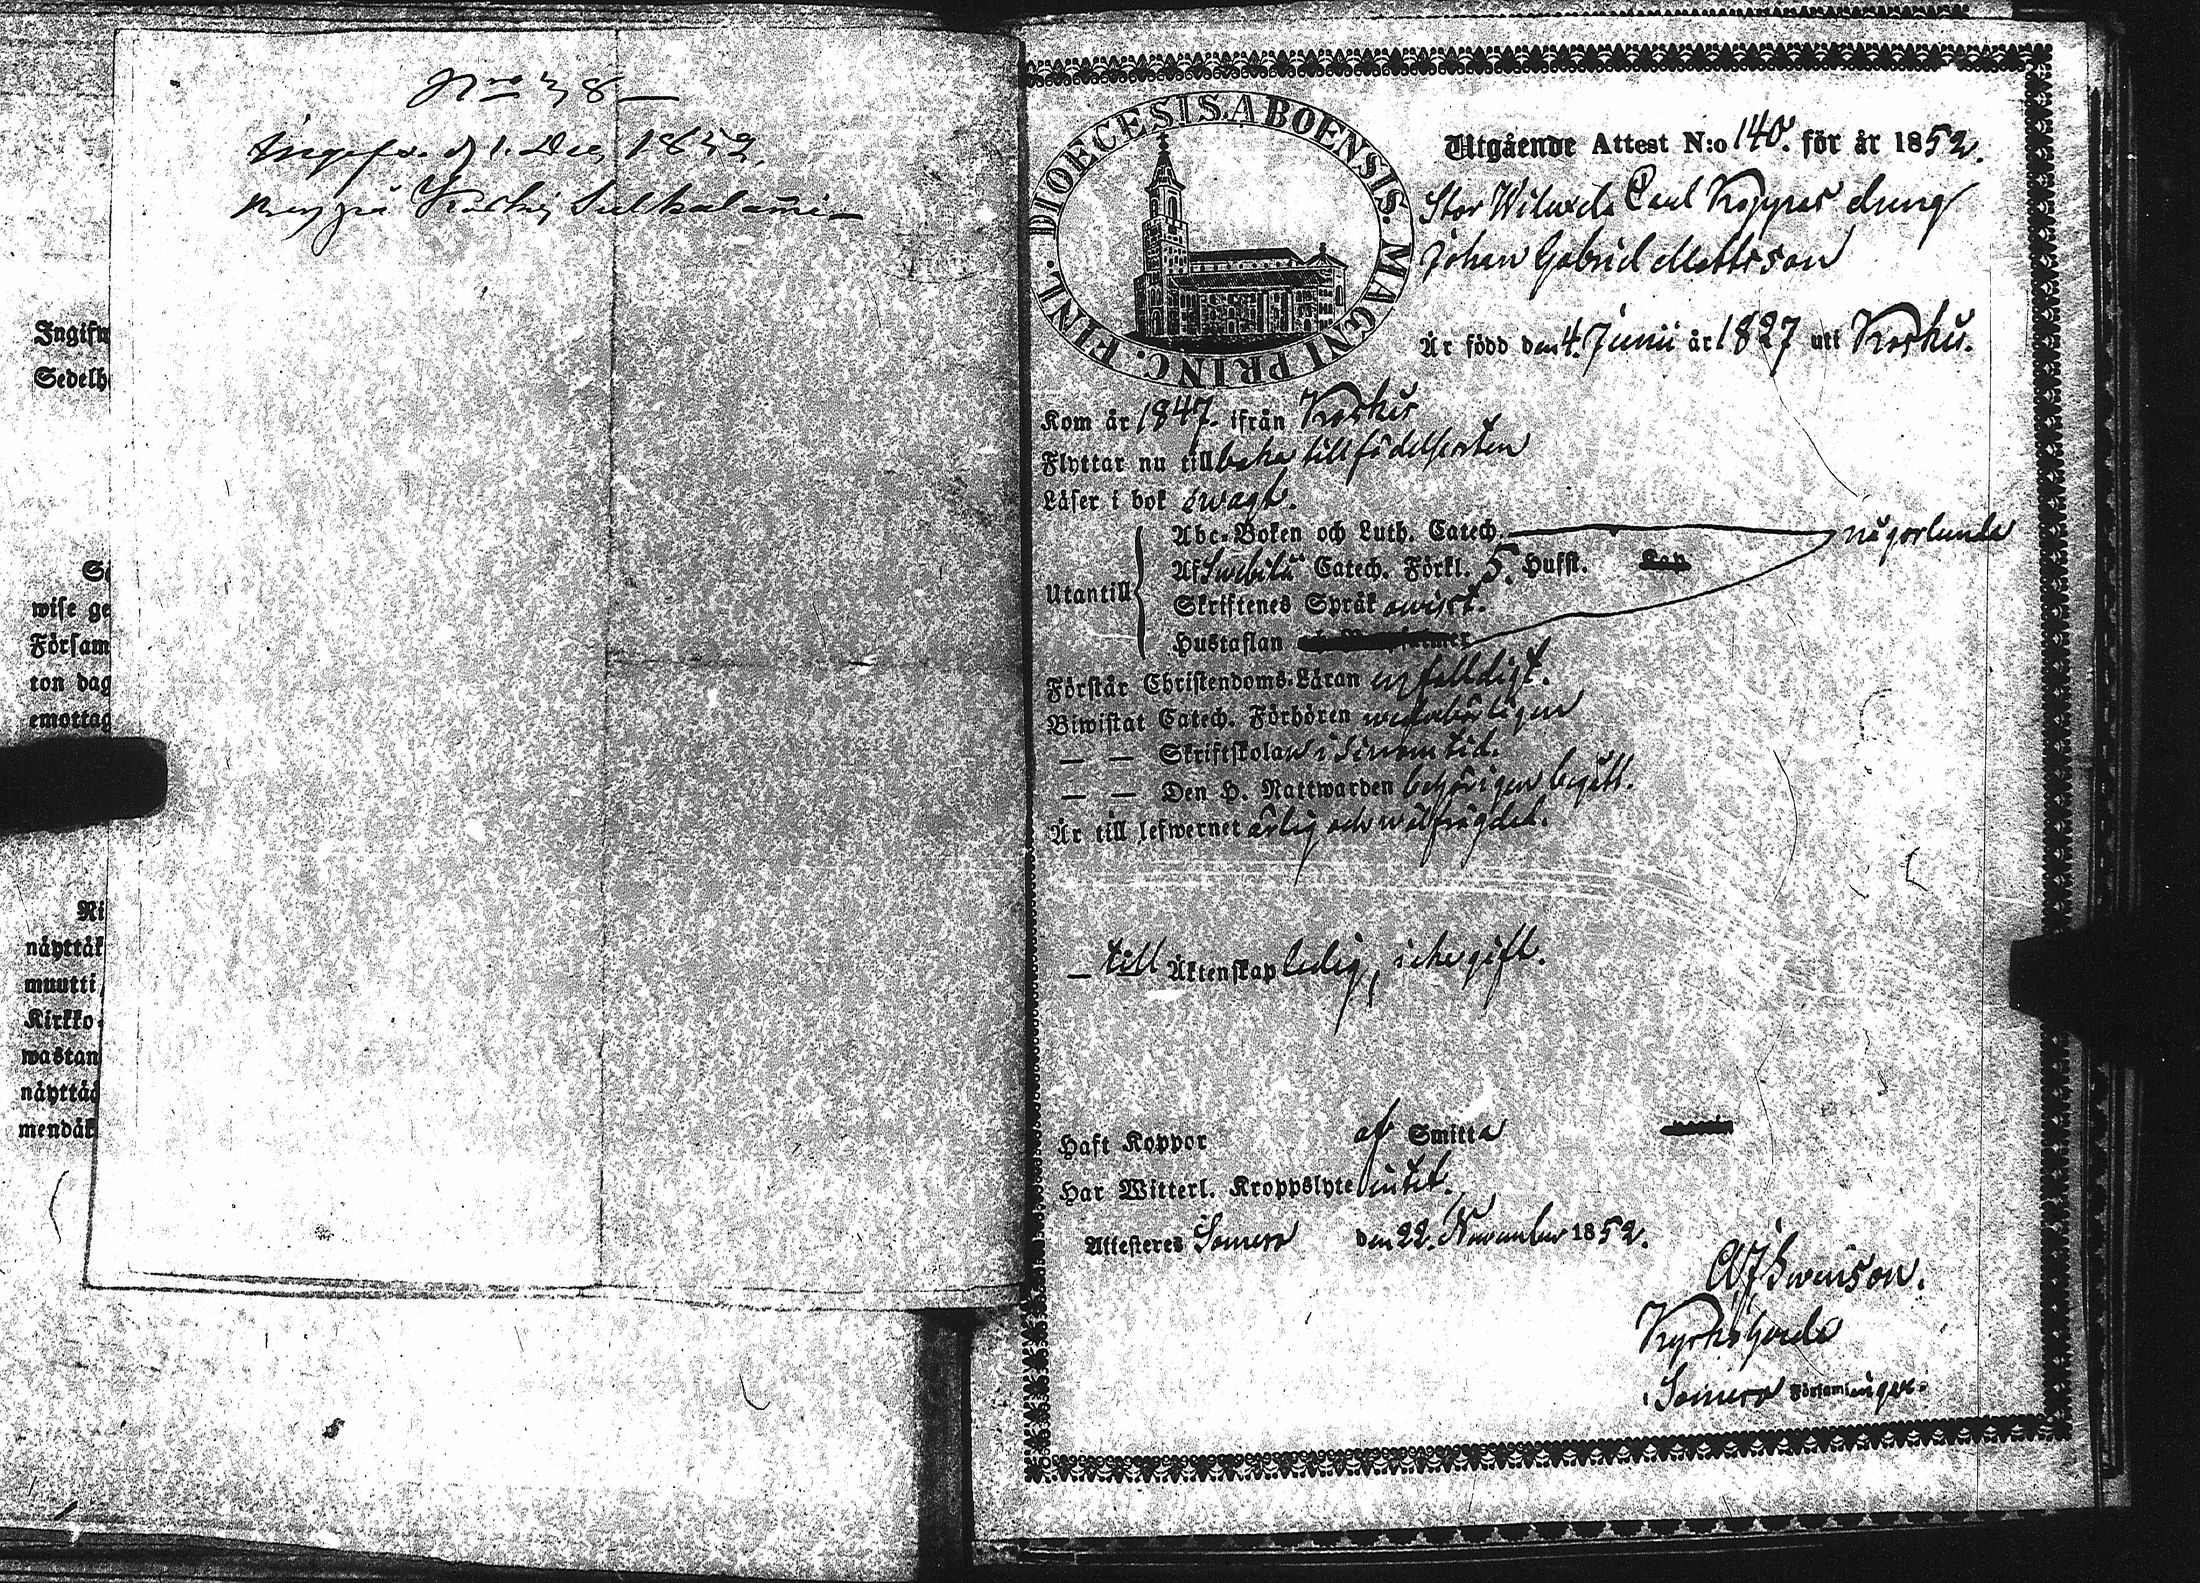 Nro 38
Ingifv. d 1. Dec 1852.
Ingifw
Sedelh
wise ge
Försam
ton dag
emottag
Ni
näyttäk
muutti,
Kirkko-
wastan
näyttää
mendäk
DIOECESIS. ABOENSIS. MAGNI PRINC. FINL.
Utgående Attest N:o 140. för år 1852.
Johan Gabriel Mattsson
Är född den 4. Junii år 1827 uti Koskis.
Kom år 1847. ifrån Koskis
Flyttar nu tillbaka till födelseorten
Läser i bok swagt.
Utantill
Abc-Boken och Luth. Catech. någorlunda
Af Swebilii Catech. Förkl. 5. Hufst. Kap
Skriftenes Språk owist.
Hustaflan
Förstår Christendoms-Läran enfalldigt.
Biwistat Catech. Förhören wederbörligen
— — Skriftskolan i sinom tid.
— — Den H. Nattwarden behörigen begått.
Är till lefwernet ärlig och wälfrägdad.
— till Äktenskap ledig, icke gift.
Haft Koppor af Smitta
Har Witterl. Kroppslyte intet.
Attesteres Somero den 22. November 1852.
Swenson.
Kyrkoherde
i Somero Församlingen.